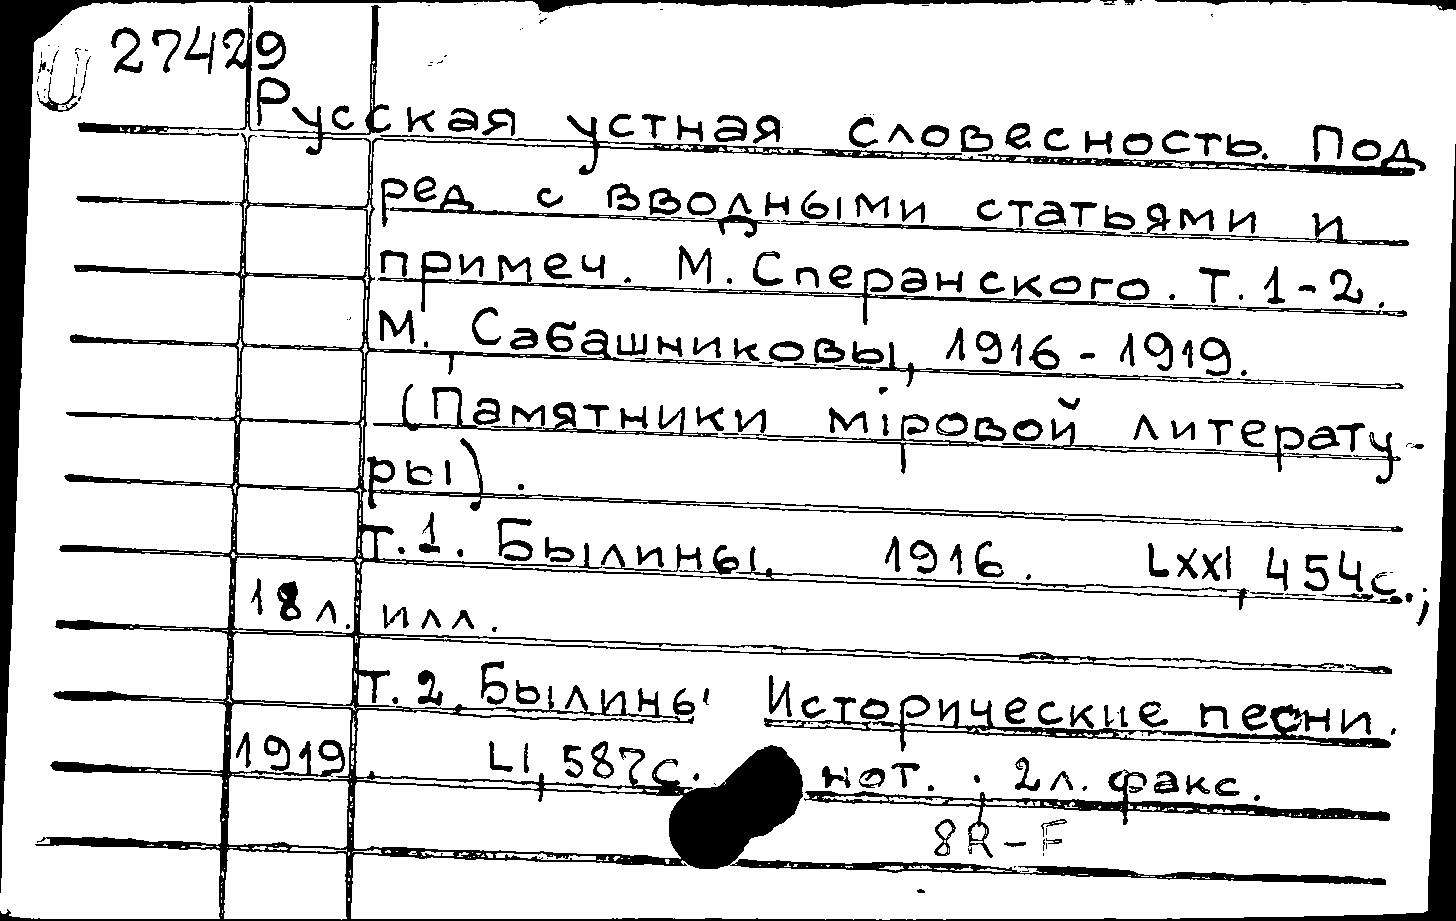 27429
Русская устная словесность. Под
ред с вводными статьями и
примеч. М. Сперанского. Т. 1-2.
М., Сабашниковы, 1916 - 1919.
(Памятники мiровой литерату-
ры).
Т. 1. Былины. 1916. LXXI, 454с.;
18 л. илл.
Т. 2. Былины Исторические песни.
1919. LI, 587с. нот. ; 2л. факс.
8R-F